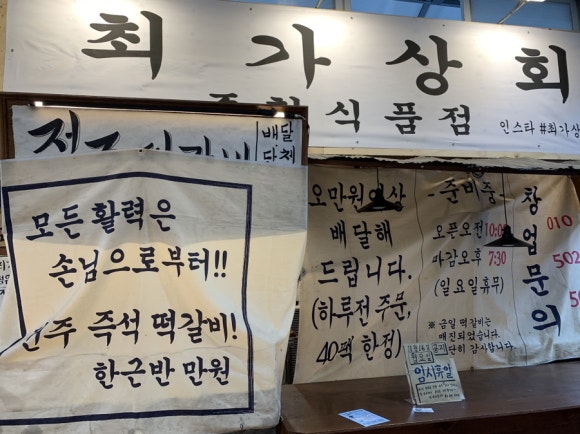 최가상회
식품점
인스타 #최가상
배달
모든 활력은
손님으로부터!!
즉석 떡갈비!
한근반 만원
오만원이상
배달해
드립니다.
(하루전 주문,
40팩 한정)
-준비중-
오픈오전
마감오후 7:30
(일요일휴무)
※ 금일 떡갈비는
매진되었습니다.
감사합니다.
창업문의
010
502
임시휴일